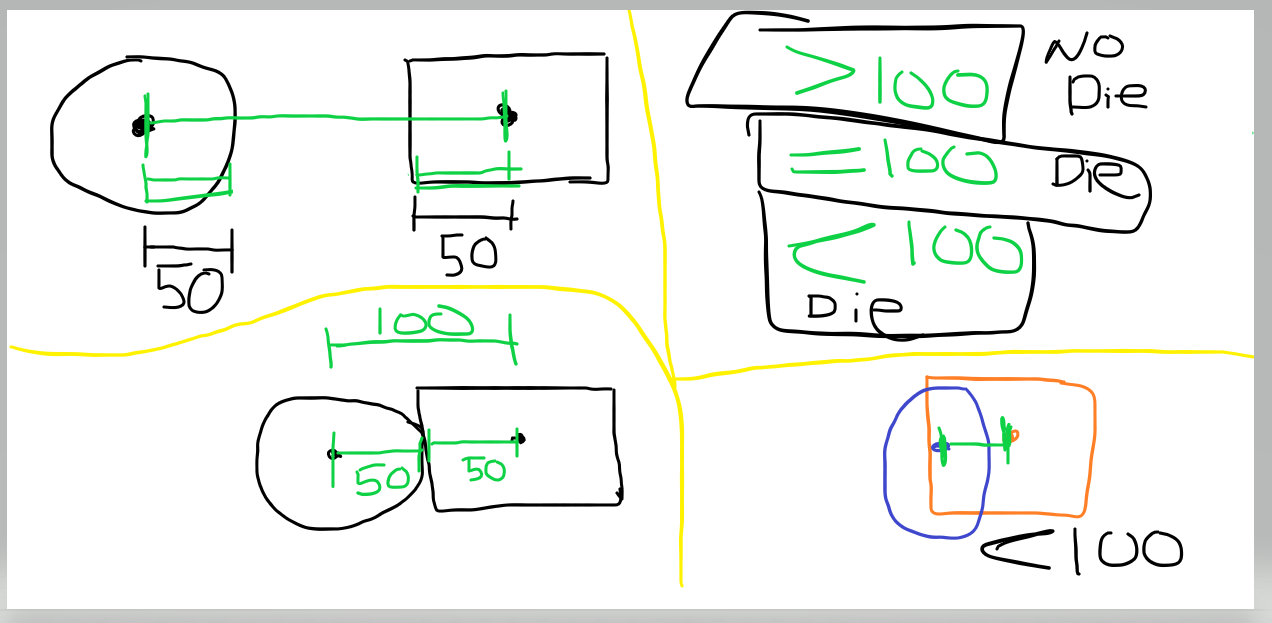 50
50
>100
NO
Die
=100
Die
<100
Die
100
50
50
<100